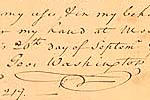 my use & in my beh
my hand at Mou
26th day of Septem
Geo: Washington
217.